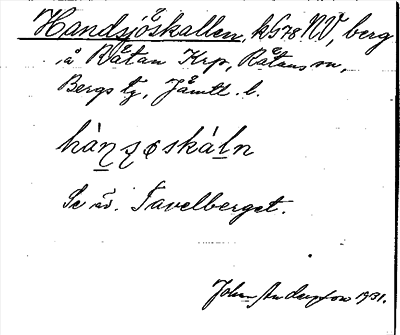 Handsjöskallen, kG78 NV, berg
å Råtan Krp, Råtans sn,
Bergs tg, Jämtl. l.
hàṉʂøskáḻn
Se äv. Tavelberget.
John Anderson 1931.